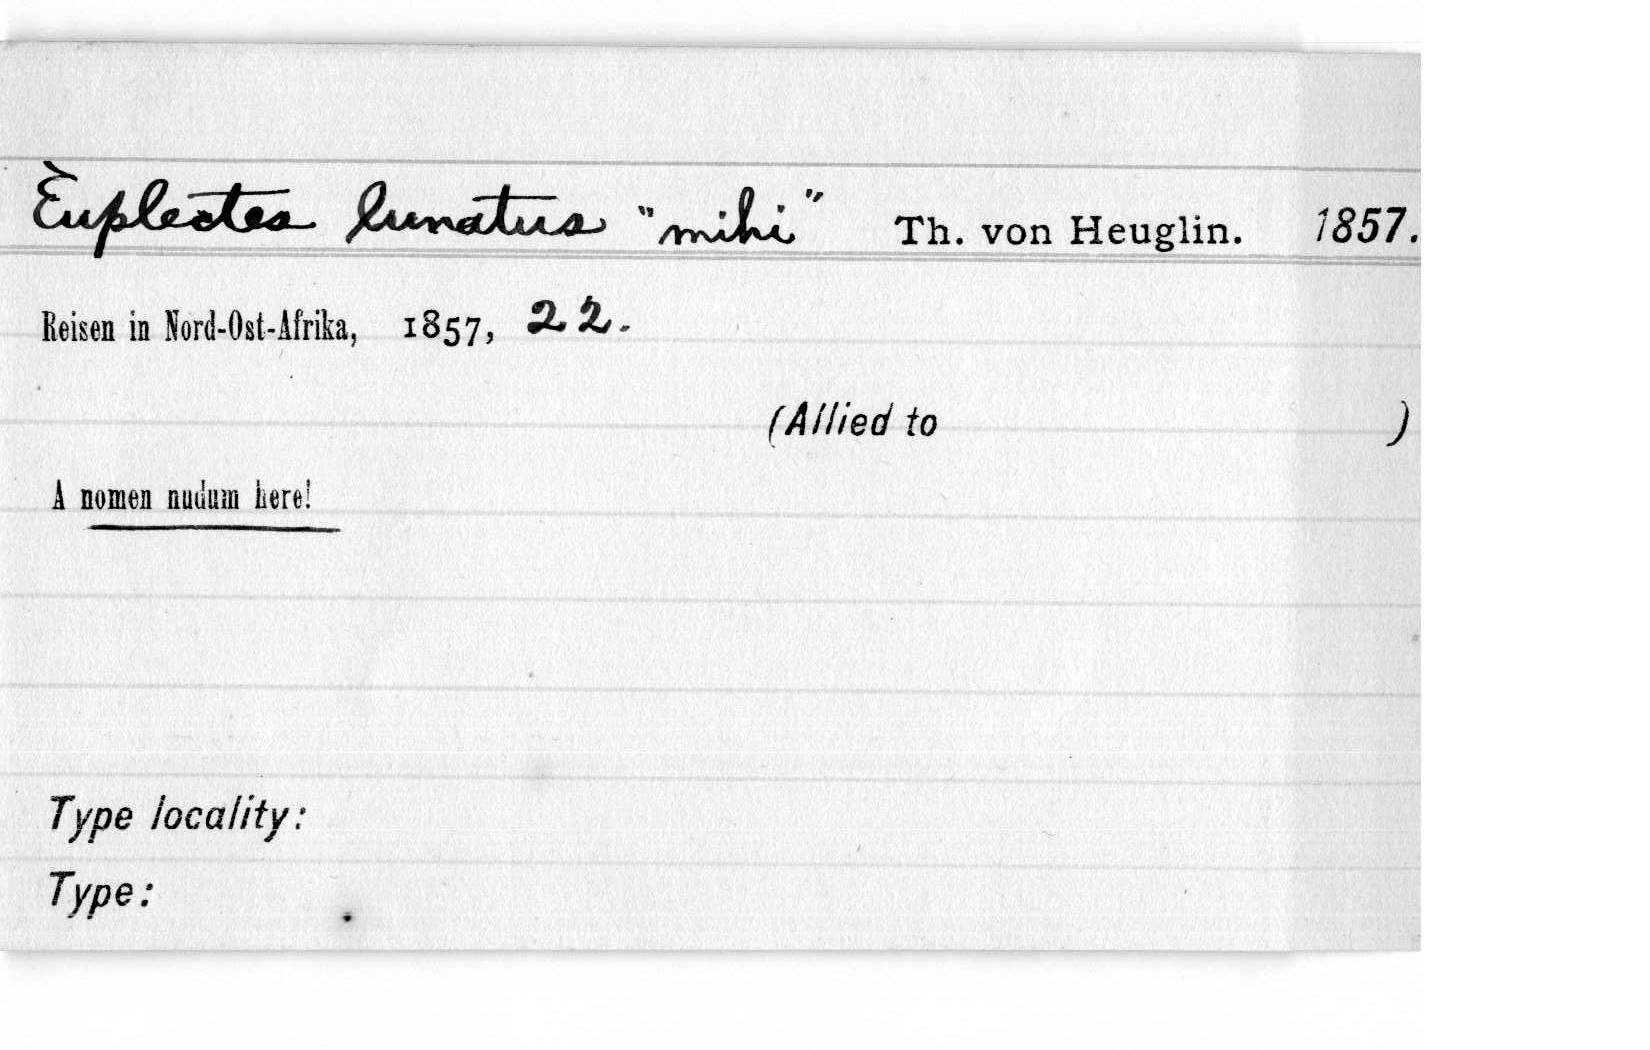 Euplectes lunatus "mihi" Th. von Heuglin. 1857.
Reisen in Nord-Ost-Afrika, 1857, 22.
(Allied to )
A nomen nudum here!
Type locality:
Type: